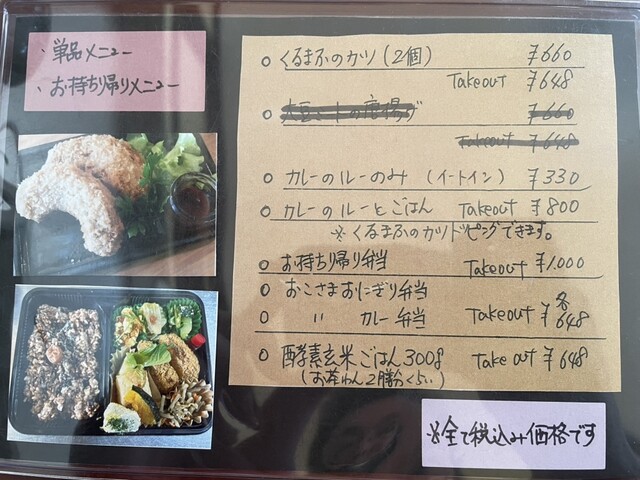 ・単品メニュー
・お持ち帰りメニュー
○ くるまふのカツ(2個) ¥660
Takeout ¥648
○ の唐揚げ ¥660
Takeout ¥648
○ カレーのルーのみ (イートイン) ¥330
○ カレーのルーとごはん Takeout ¥800
※くるまふのカツトッピングできます。
○ お持ち帰り弁当 Takeout ¥1,000
○ おこさまおにぎり弁当
○ 〃 カレー弁当 Takeout ¥各648
○ 酵素玄米ごはん300g Takeout ¥648
(お茶わん2膳分くらい)
※全て税込み価格です